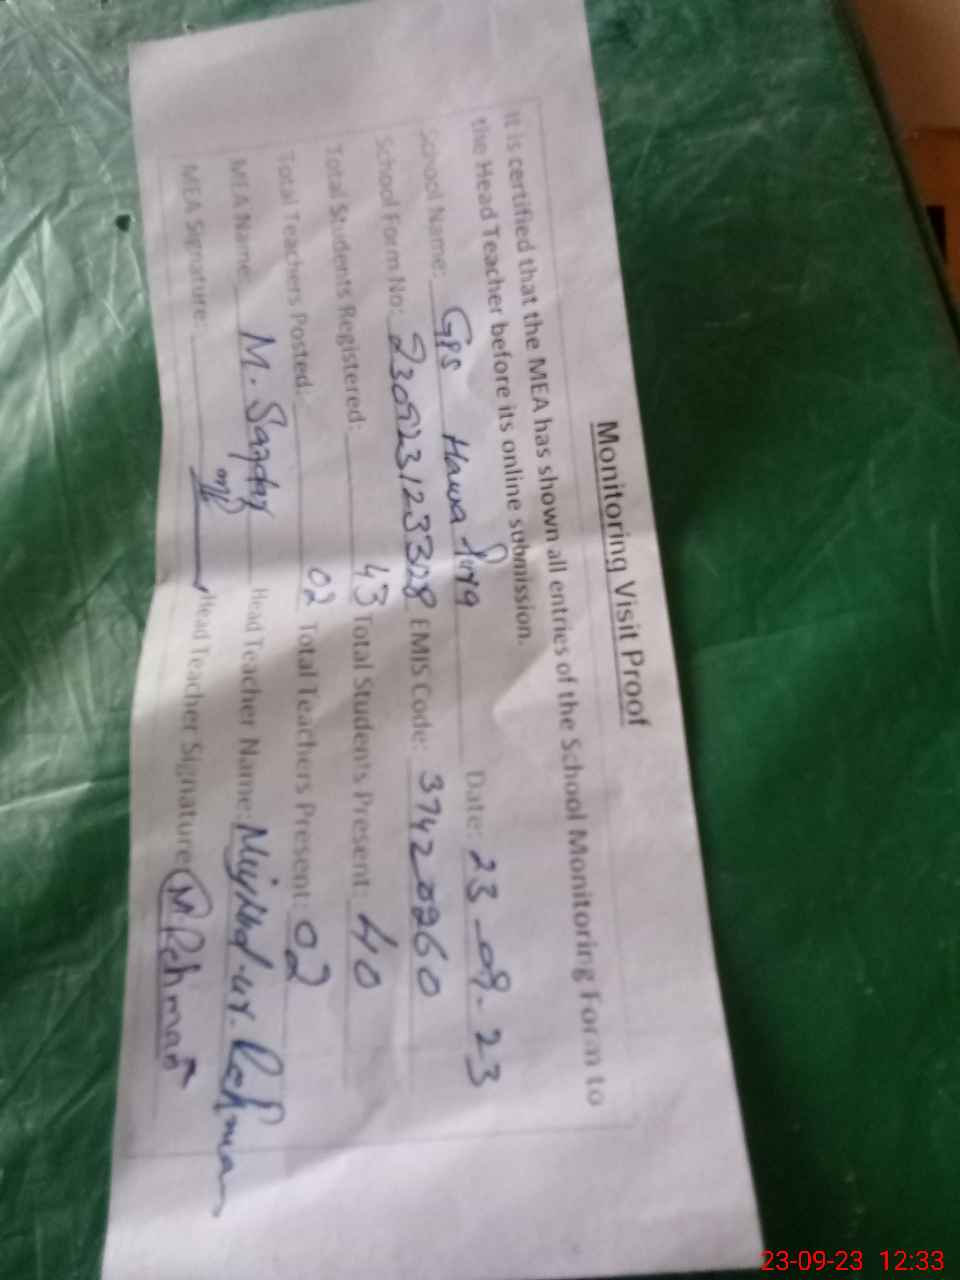 Monitoring Visit Proof
It is certified that the MEA has shown all entries of the School Monitoring Form to
the Head Teacher before its online submission.
School Name: GPS Hawa Date: 23-09-23
School Form No: EMIS Code: 37420260
Total Students Registered: 43 Total Students Present: 40
Total Teachers Posted: 02 Total Teachers Present: 02
MEA Name: M. Head Teacher Name: -ur-Rehman
MEA Signature: Head Teacher Signature M Rehman
23-09-23 12:33